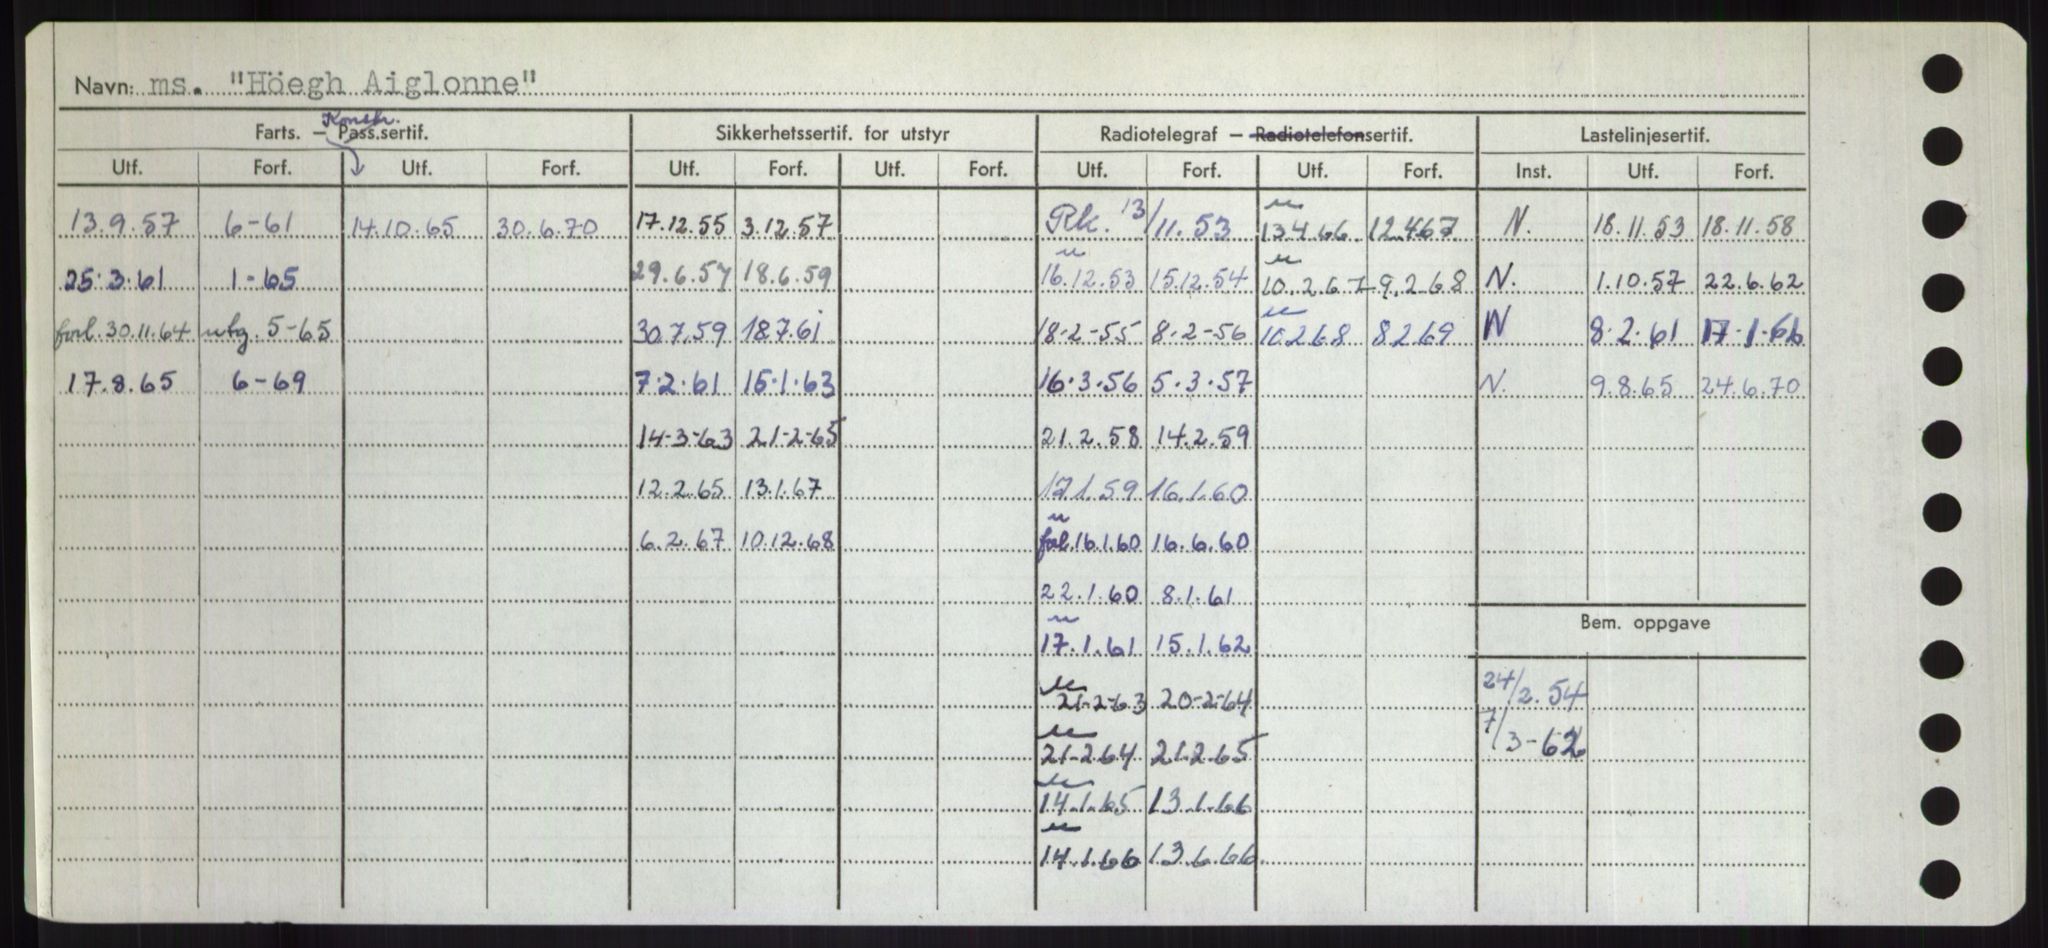 Navn: ms. "Höegh Aiglonne"
Konstr.
Farts. – Pass.sertif. Sikkerhetssertif. for utstyr Radiotelegraf – Radiotelefonsertif. Lastelinjesertif.
Utf. Forf. Utf. Forf. Utf. Forf. Utf. Forf. Utf. Forf. Utf. Forf. Inst. Utf. Forf.
13.9.57 6-61 14.10.65 30.6.70 17.12.55 3.12.57 Rk. 13/11.53 u 13.4.66 12.4.67 N. 18.11.53 18.11.58
25.3.61 1-65 29.6.57 18.6.59 u 16.12.53 15.12.54 u 10.2.67 9.2.68 N. 1.10.57 22.6.62
forl. 30.11.64 utg. 5-65 30.7.59 18.7.61 18-2-55 8-2-56 u 10.2.68 8.2.69 N 8.2.61 17-1-66
17.8.65 6-69 7.2.61 15.1.63 16.3.56 5.3.57 N. 9.8.65 24.6.70
14-3-63 21-2-65 21.2.58 14.2.59
12.2.65 13.1.67 17.1.59 16.1.60
6.2.67 10.12.68 u forl. 16.1.60 16.6.60
22.1.60 8.1.61
Bem. oppgave
u 17.1.61 15.1.62
u 21-2-63 20-2-64 24/2.54
u 21-2.64 21.2.65 7/3-62
u 14.1.65 13.1.66
u 14.1.66 13.6.66